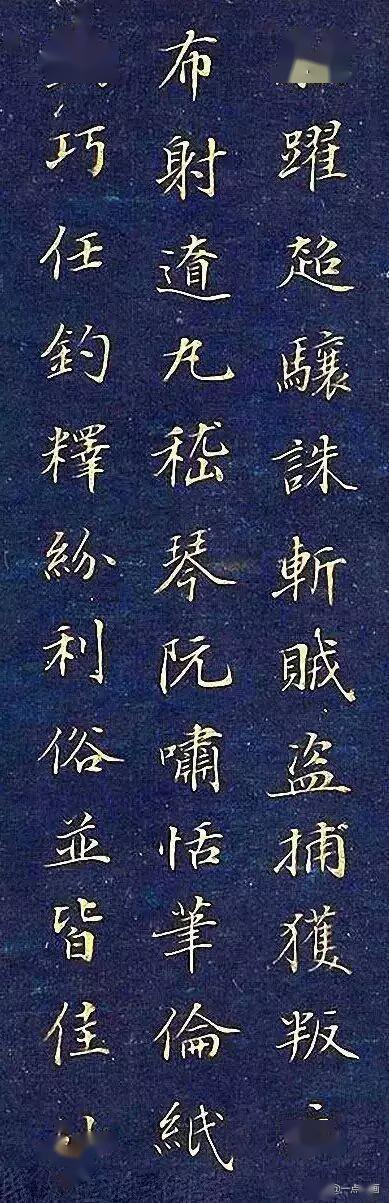 躍超驤誅斬賊盜捕獲叛
布射遼丸嵇琴阮嘯恬筆倫紙
巧任釣釋紛利俗並皆佳
@一点 画